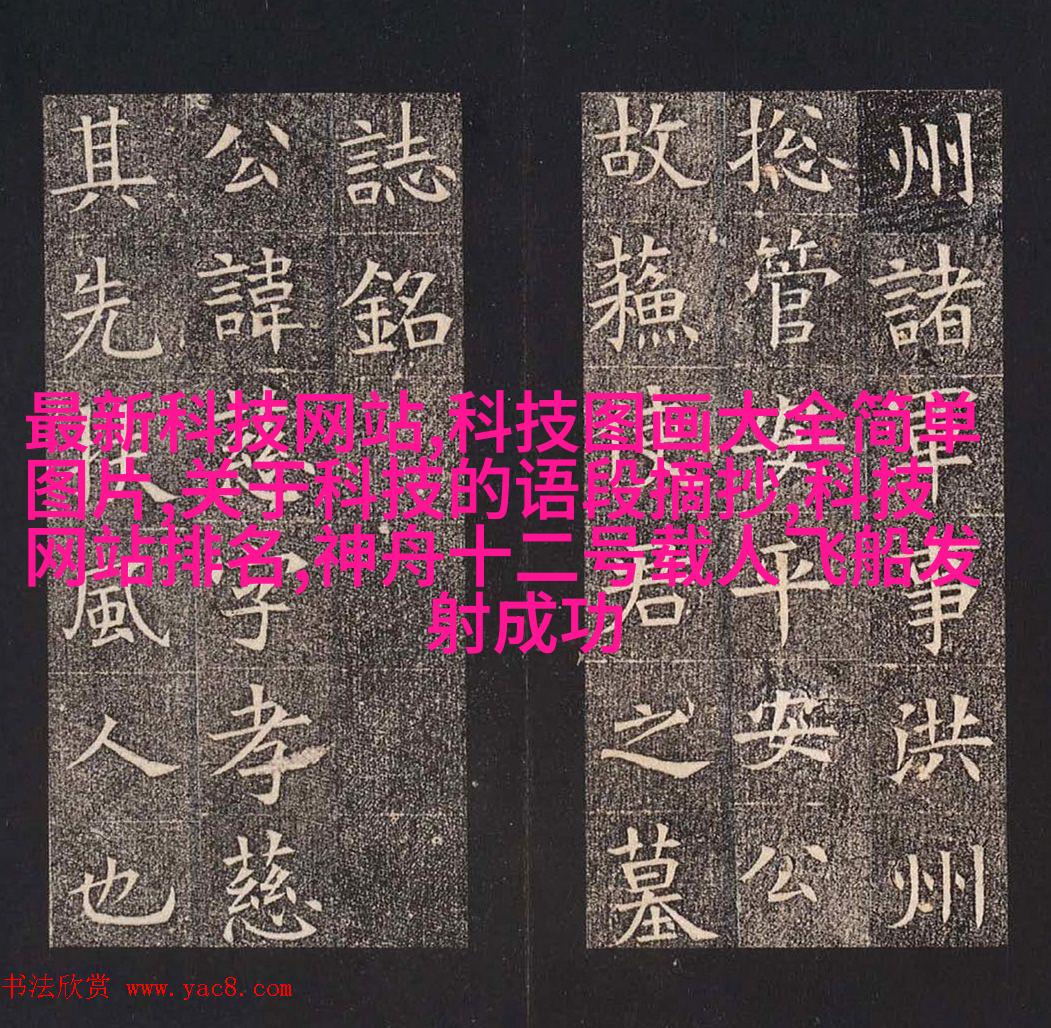 州諸軍事洪州
捴管安平安公
故蘓君之墓
誌銘
公諱慈字孝慈
其先風人也
最新科技网站,科技图画大全简单
图片,关于科技的语段摘抄,科技
网站排名,神舟十二号载人飞船发
射成功
书法欣赏 www.yac8.com